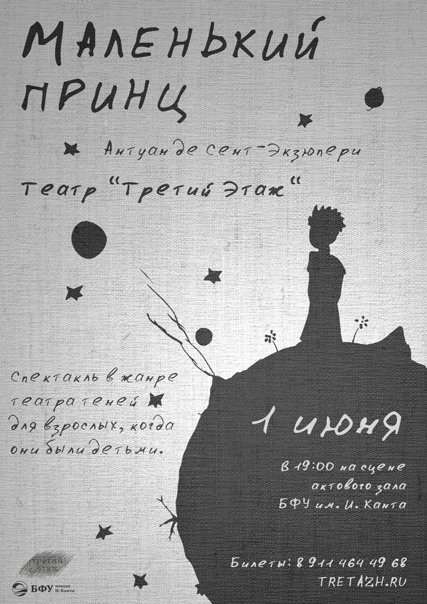 Маленький
принц
Антуан де Сент-Экзюпери
Театр "Третий Этаж"
Спектакль в жанре
театра теней
для взрослых, когда
они были детьми.
1 июня
В 19:00 на сцене
актового зала
БФУ им. И. Канта
Билеты: 8 911 464 49 68
TRETAZH.RU
третий
этаж
БФУ имени
И. Канта